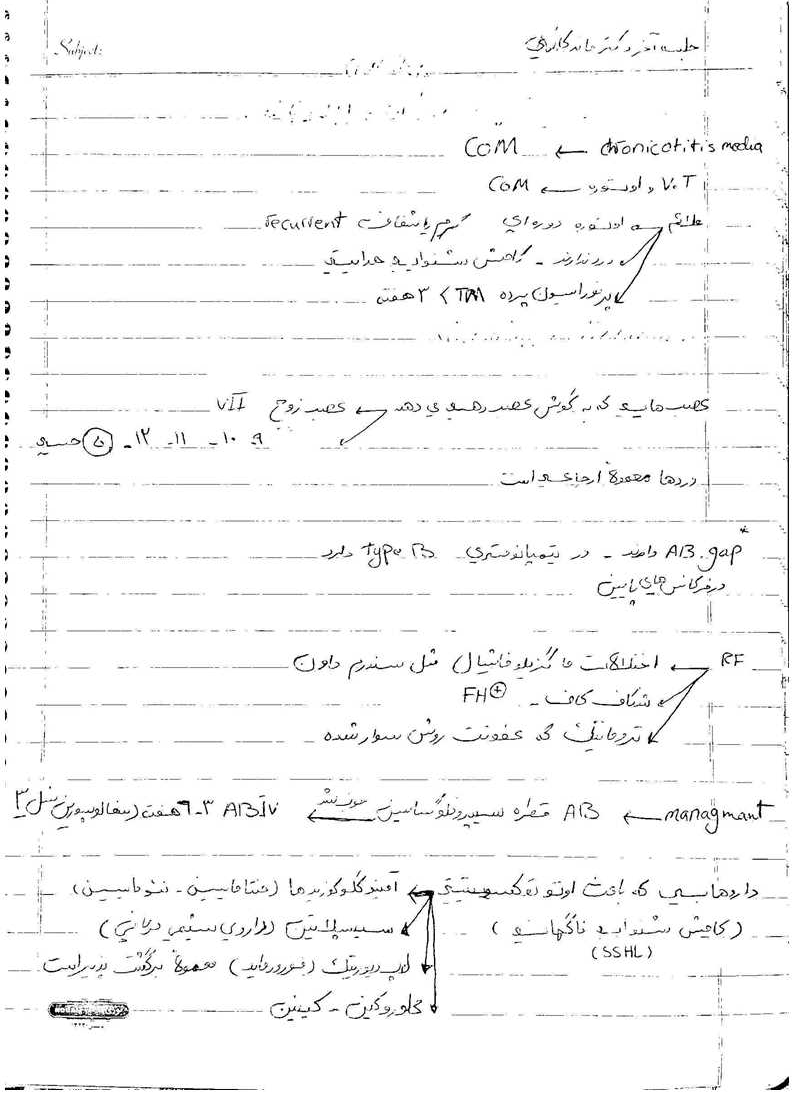 Subject:
جلسه آخر دکتر خانم
COM ← chronic otitis media
V.T و اوتوره ← COM
علائم ← اوتوره دوره‌ای recurrent
درد ندارند - کاهش شنوایی هدایتی
پرفوراسیون پرده TM > ۳ هفته
عصب هایی که به گوش عصب رهی می دهد ← عصب زوج VII
۹ - ۱۰ - ۱۱ - ۱۲ - ۵ حسی
دردها معمولا ارجاعی است
* AB.gap دارند - در تیمپانومتری Type B دارد
در فرکانس های پایین
RF ← اختلالات ماگزیلوفاشیال مثل سندرم داون
شکاف کاف - FH +
تروماتیک که عفونت روش سوار شده
managmant ← AB قطره سیپروفلوکساسین ← AB IV ۳-۶ هفته (سفالوسپورین نسل ۳
داروهایی که باعث اوتوتوکسیسیتی ← آمینوگلوکوزیدها (جنتامایسین - نئومایسین)
(کاهش شنوایی ناگهانی) سیس پلاتین (داروی شیمی درمانی)
(SSHL)
لوپ دیورتیک (فورزماید) معمولا برگشت پذیر است
کلروکین - کینین